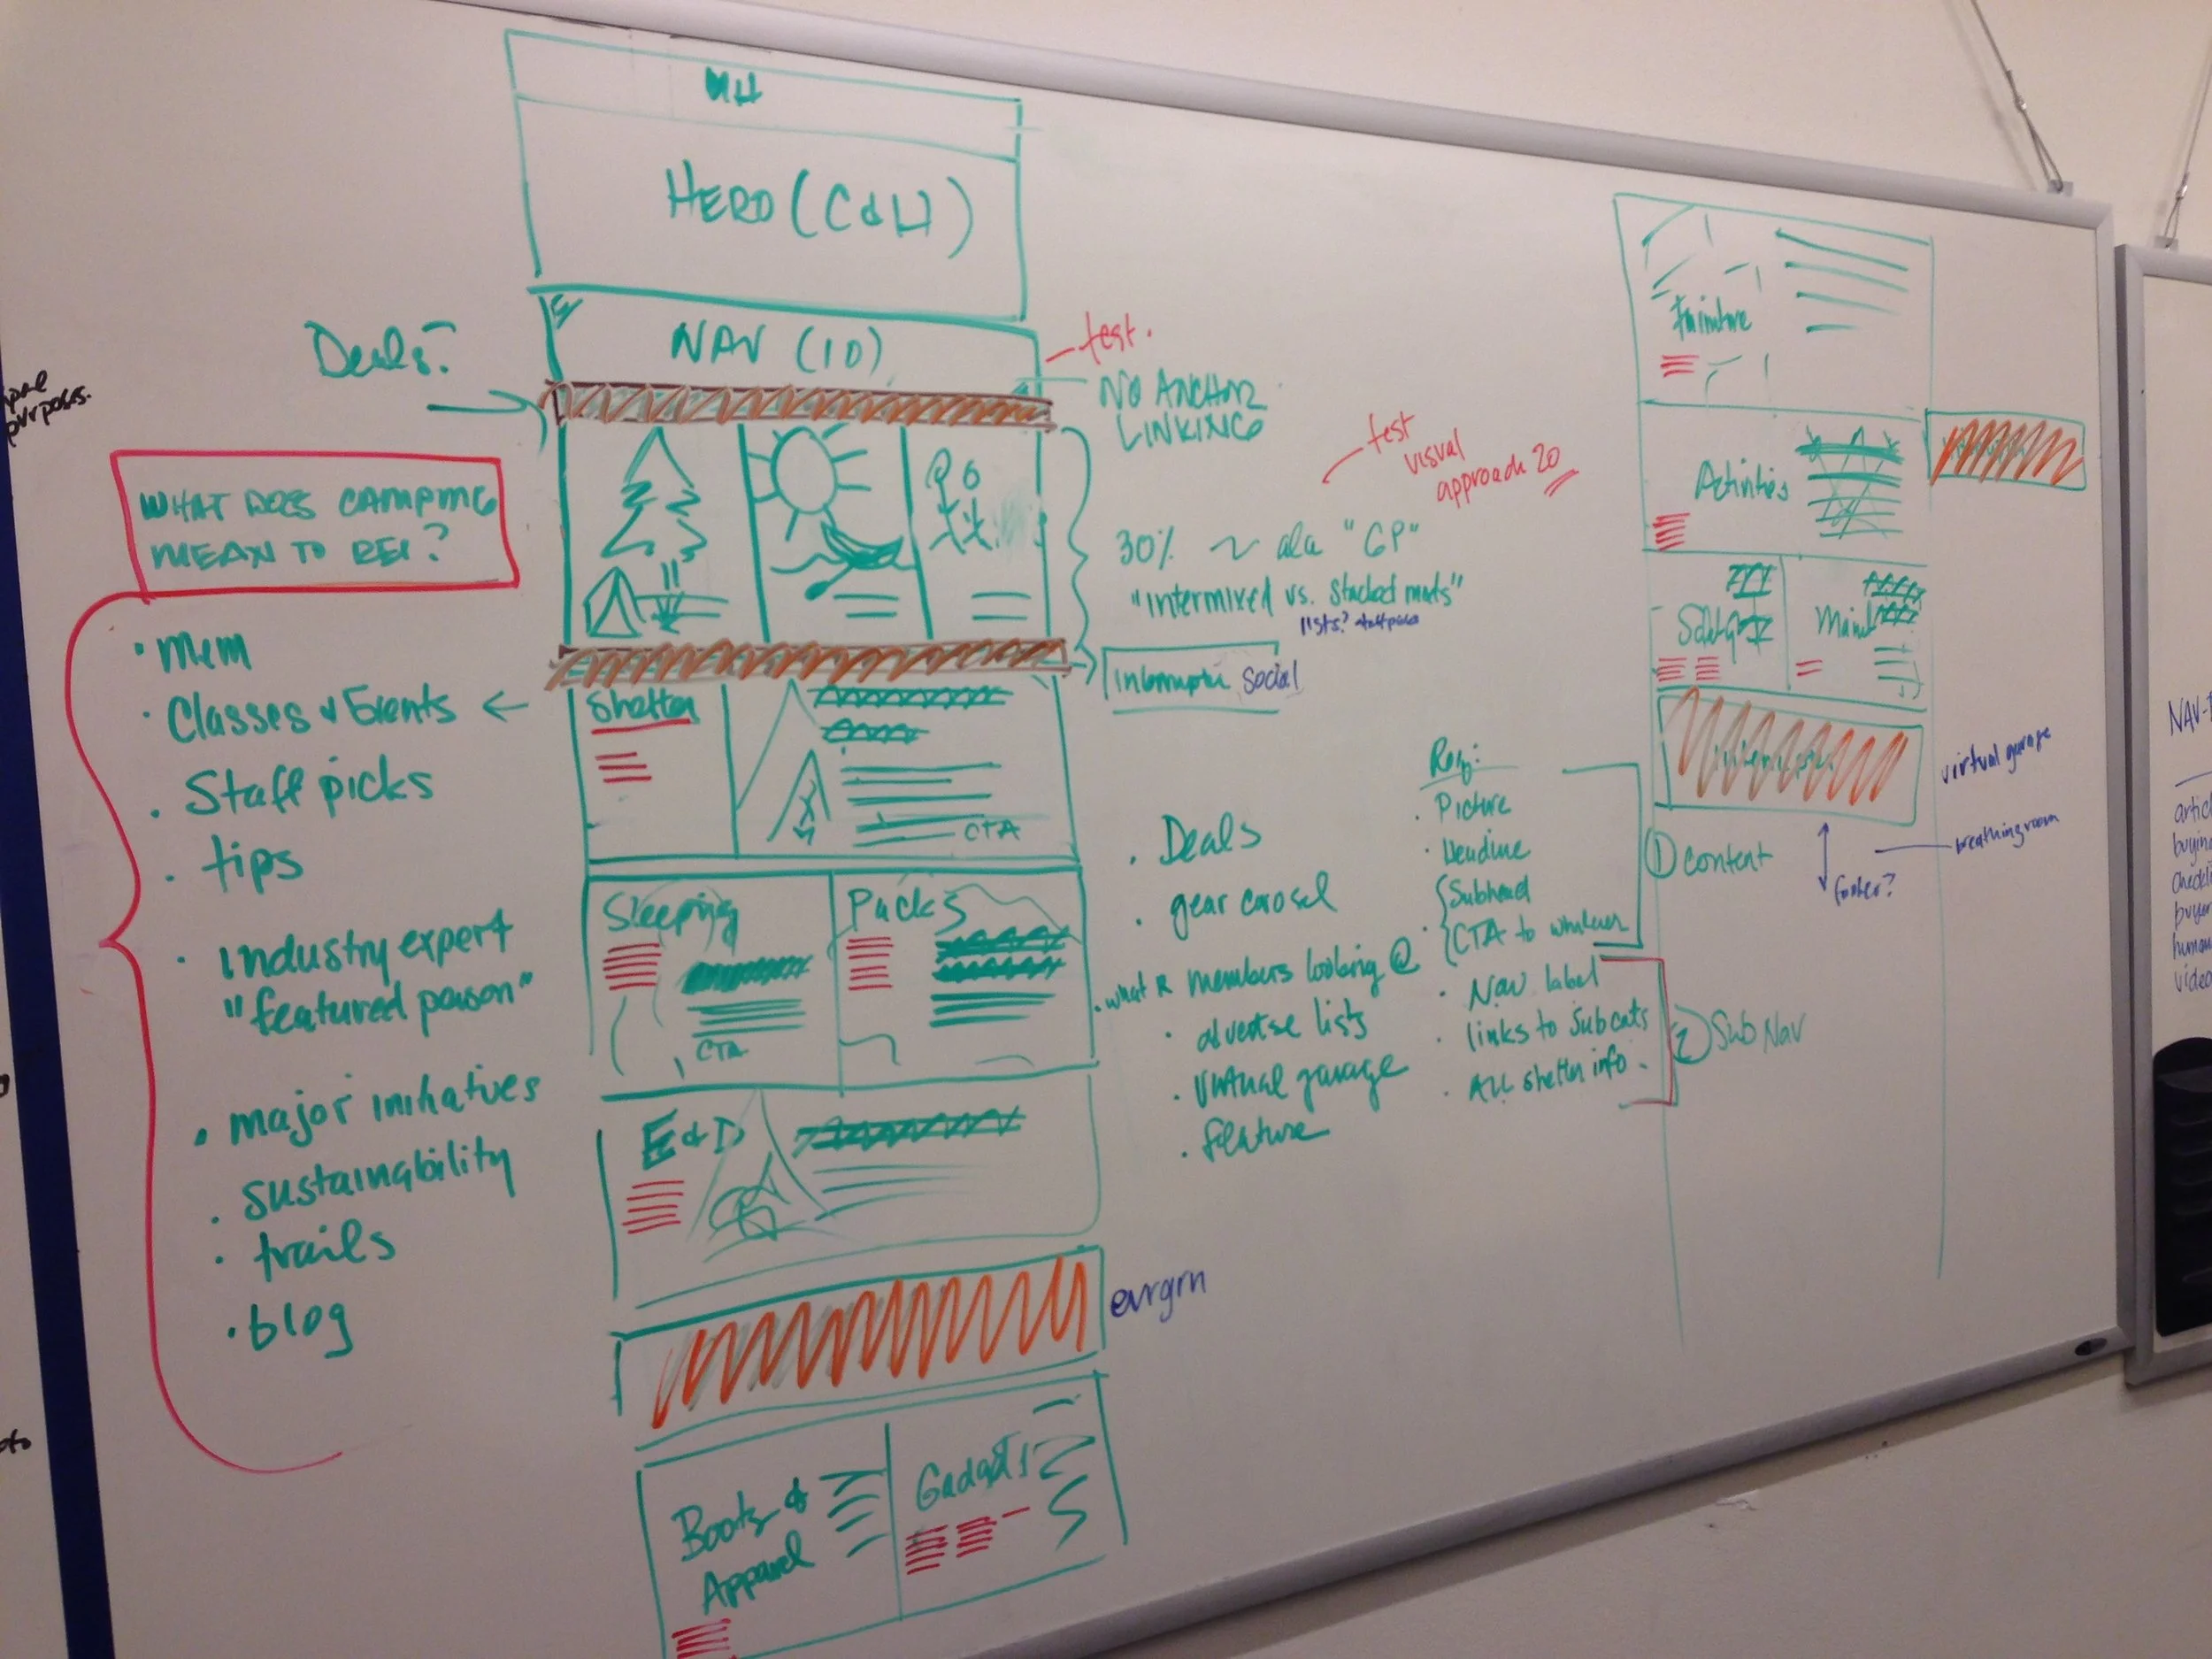 HERO (C&H)
NAV (10)
Deals?
test.
NO ANCHOR
LINKING
test
visual
approach 20
30% ~ ala "GP"
"intermixed vs. stacked mods"
lists? staff picks
Social
purposes.
WHAT DOES CAMPING
MEAN TO REI?
• mem
• Classes & Events ←
• Staff picks
• tips
• industry expert
"featured person"
• major initiatives
• sustainability
• trails
• blog
Shelter
CTA
Sleeping
CTA
Packs
E & D
evrgrn
Boots &
Apparel
Gadgets
• Deals
• gear carosel
• what R members looking @
• advertise lists
• virtual garage
• feature
• Picture
• Headline
• Subhead
CTA to whatever
• Nav label
• links to Subcats
• ALL shelter info.
① content
② Sub Nav
Furniture
Activities
virtual garage
breathing room
footer?
video